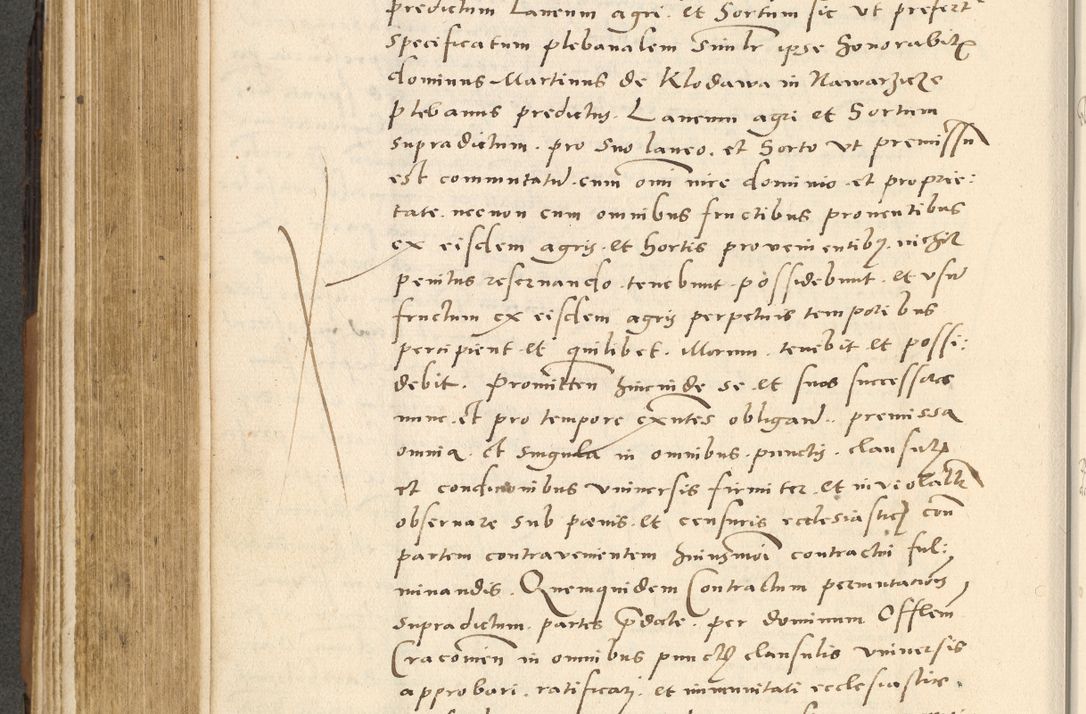 predictum Laneum agri et Sortum sic ut prefert
specificatum plebanalem Similr ipse honorabilis
dominus Martinus de Klodawa in Nawarzicze
plebanus predictus. Laneum agri et Sortum
supradictum. pro suo laneo. et Sorto ut premissum
est commutatum. cum omni iure dominio et proprie:
tate. necnon cum omnibus fructibus proventibus
ex eisdem agris. et hortis provenientibus. nichil
penitus reservando. tenebunt. possidebunt. et usum
fructum ex eisdem agris perpetuis temporibus
percipient. et quilibet. illorum. tenebit et possi:
debit. Promitten hincinde se et suos successores
nunc. et pro tempore exntes obligand. premissa
omnia. et singula in omnibus. punctis. clausulis
et conditionibus universis firmiter. et inviolabilr
observare sub penis. et censuris ecclesiasticis con
partem contravenientem huiusmodi contractui ful:
minandis. Quemquidem Contractum permutationis
supradictum. partes pdicte. per dominum Offlem
Cracovien in omnibus punctis clausulis universis
approbari. ratificari. et immunitati ecclesiastice